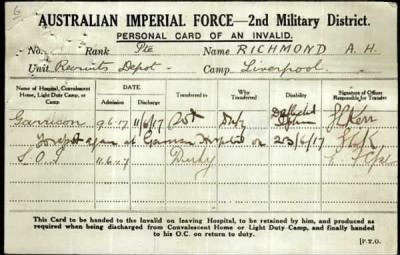 AUSTRALIAN IMPERIAL FORCE—2nd Military District.
PERSONAL CARD OF AN INVALID.
No. Rank Pte Name RICHMOND A. H.
Unit Recruits Depot Camp Liverpool.
Name of Hospital, Convalescent Home, Light Duty Camp, or Camp
DATE
Admission
Discharge
Transferred to
Why Transferred
Disability
Signature of Officer Responsible for Transfer
Garrison 9.6.17 11/6/17 Duty
at Garrison Hospital on 23/6/17
11.6.17
This Card to be handed to the Invalid on leaving Hospital, to be retained by him, and produced as
required when being discharged from Convalescent Home or Light Duty Camp, and finally handed
to his O.C. on return to duty.
[P.T.O.